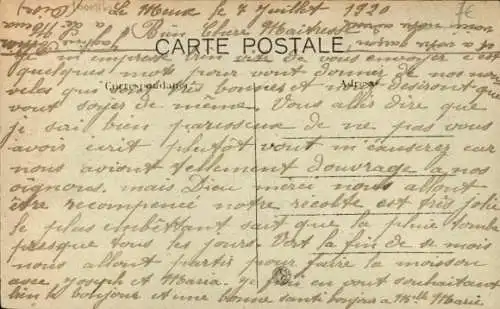 Le Meux le 7 Juillet 1920
Bien Chere Maitresse
CARTE POSTALE
Je m'empresse bien vite de vous envoyer c'est
quelques mots pour vous donner de nos nou
Correspondance
Adresse
velles qui bonnes et nous desiront que
vous soyer de meme. Vous aller dire que
je sui bien paresseux de ne pas vous
avoir ecrit plutôt vous m'causerez car
nous aviont tellement douvrage a nos
oignons. mais Dieu merci nous allont
être recompencé notre recolte est très jolie
le plus embêttant sait que la pluie tombe
presque tous les jours. Vert la fin de se mois
nous allont partir pour faire la moisson
avec Joseph et Maria. je fini en vous souhaitant
bien le bonjour et une bonne santé bonjour a Melle Marie